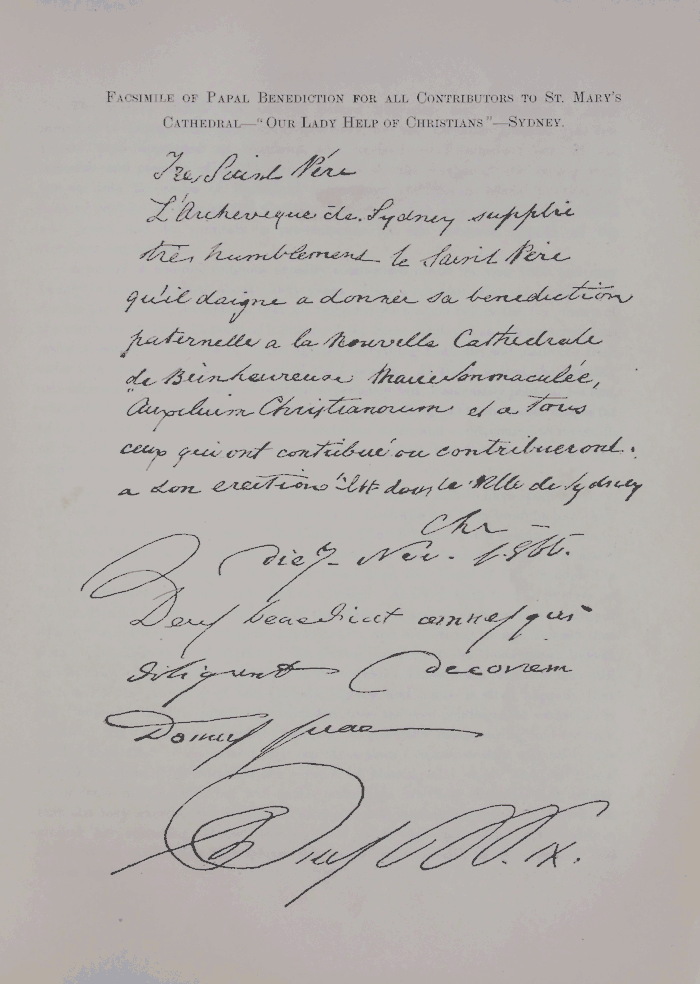 FACSIMILE OF PAPAL BENEDICTION FOR ALL CONTRIBUTORS TO ST. MARY'S
CATHEDRAL—"OUR LADY HELP OF CHRISTIANS"—SYDNEY.
Tres Saint Père
L'Archeveque de Sydney supplie
très humblement le Saint Père
qu'il daigne a donner sa benediction
paternelle a la Nouvelle Cathedrale
de Bienheureuse Marie Immaculée,
Auxilium Christianorum et a Tous
ceux qui ont contribué ou contribueront
a son erection dans la Ville de Sydney
die 7 Nov. 186
Deus benedicat omnes qui
diligunt decorem
Domus suae
Pius PP. IX.